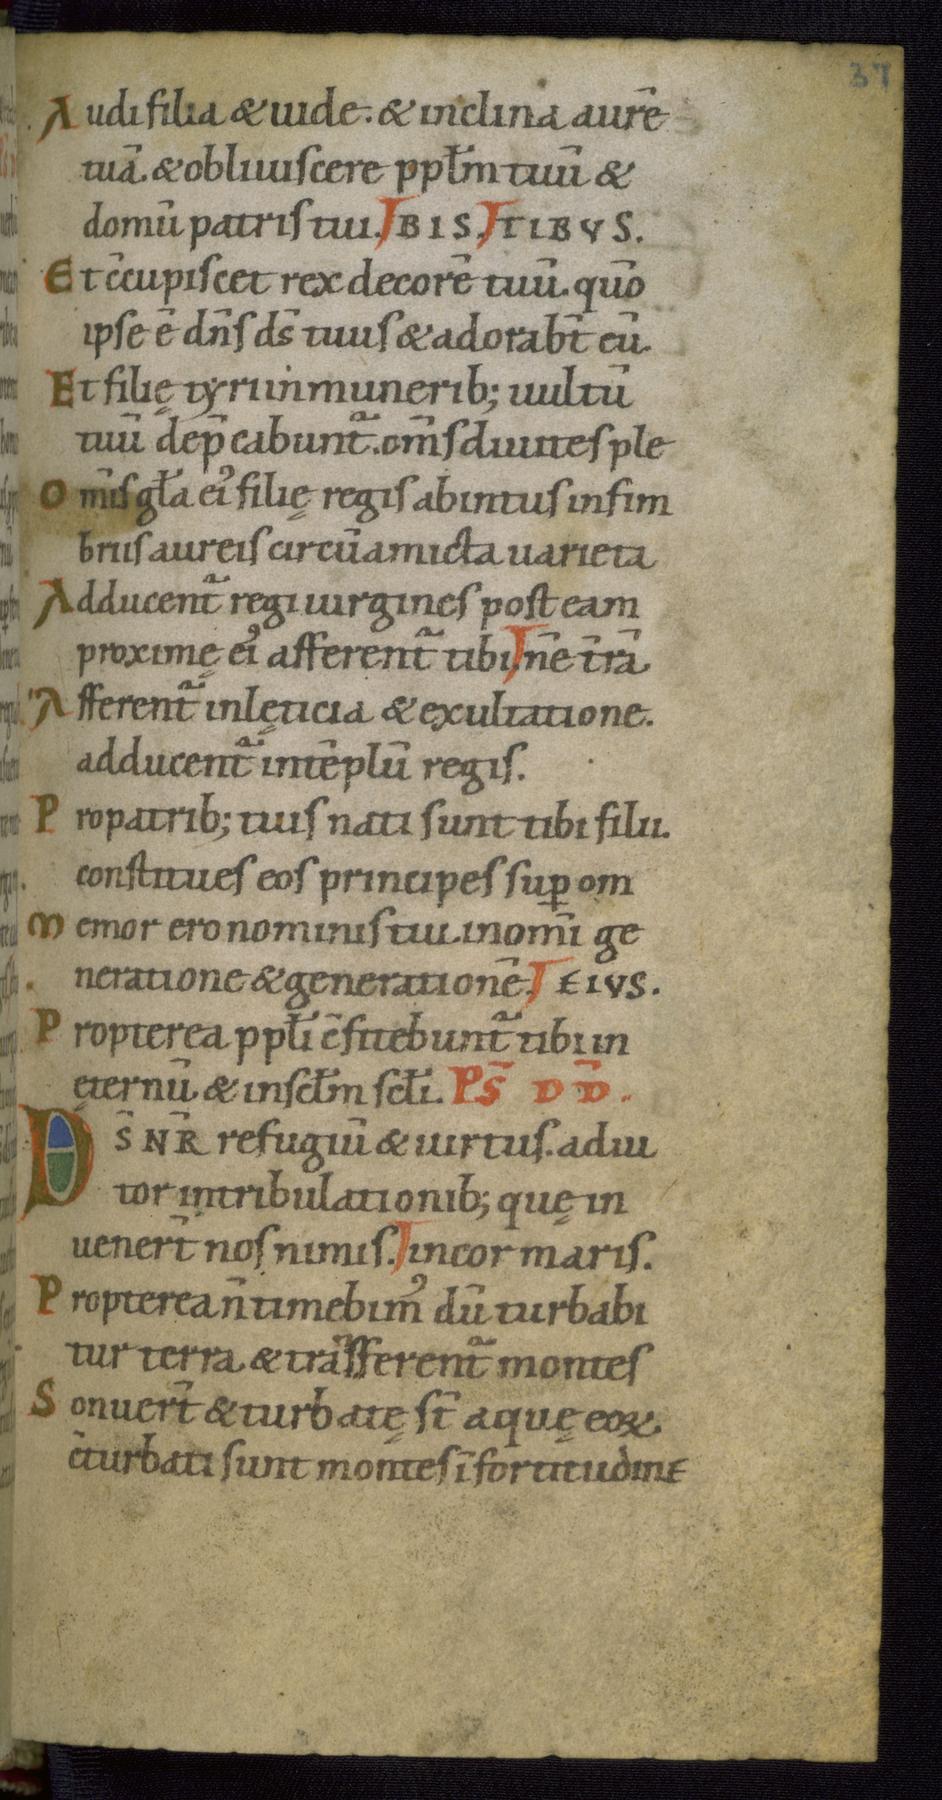 37
Audi filia & uide. & inclina aurē
tuā & obliuiscere ppłm tuū &
domū patris tui. BIS. TIBVS.
Et c̄cupiscet rex decorē tuū. quō
ipse ē dn̄s ds̄ tuus & adorabt̄ eū.
Et filię tyri inmunerib; uultū
tuū dep̄cabunt̃. om̄s diuites ple
Om̄is gła ei᾽ filię regis abintus infim
briis aureis circūamicta uarieta
Adducent̃ regi uirgines post eam
proximę ei᾽ afferent̃ tibi. nē t̄rā
Afferent̃ inlęticia & exultatione.
adducent̃ intēplū regis.
Propatrib; tuis nati sunt tibi filii.
constitues eos principes sup̱ om
Memor ero nominis tui. inom̄i ge
neratione & generationē. EIVS.
Propterea ppłi c̄fitebunt̃ tibi in
ęternū. & insc̄łm sc̄łi. PS̄ DD̄.
DS̄ NR̄ refugiū & uirtus. adiu
tor intribulationib; quę in
uenert̄ nos nimis. incor maris.
Propterea n̄ timebim᾽ dū turbabi
tur terra & trāsferent̃ montes
Sonuert̄ & turbatę st̄ aquę eoꝝ.
c̄turbati sunt montes ī fortitudine